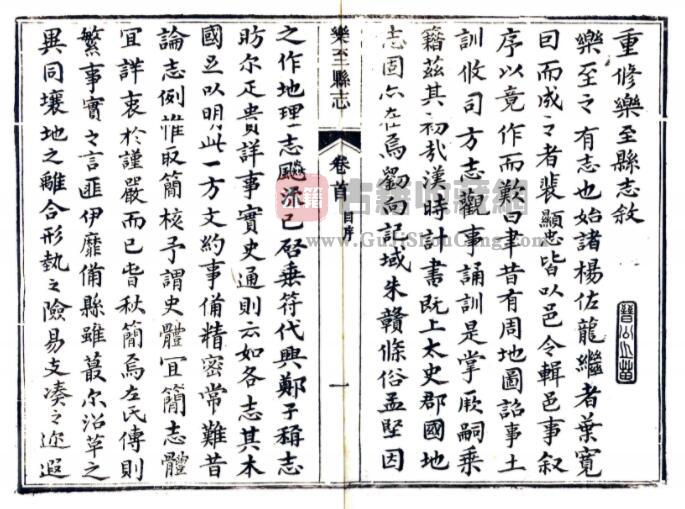 重修樂至縣志敘
樂至之有志也始諸楊佐龍繼者葉寬
曰而成之者裴顯忠皆以邑令輯邑事敘
序以竟作而歎曰聿昔有周地圖詔事土
訓攸司方志觀事誦訓是掌厥嗣乘
籍茲其初哉漢時計書既上太史郡國地
志固亦在焉劉向記域朱贛條俗孟堅因
樂至縣志
卷首
目序
一
之作地理一志飇流已啓垂符代興鄭子稱志
昉尔疋貴詳事實史通則云如各志其本
國足以明此一方文約事備精密常難昔
論志例惟取簡核予謂史體宜簡志體
宜詳衷於謹嚴而已春秋簡焉左氏傳則
繁事實之言匪伊靡備縣雖蕞尔沿革之
異同壤地之離合形勢之險易支湊之迩遐
古籍收藏网
www.GuJiShouCang.com